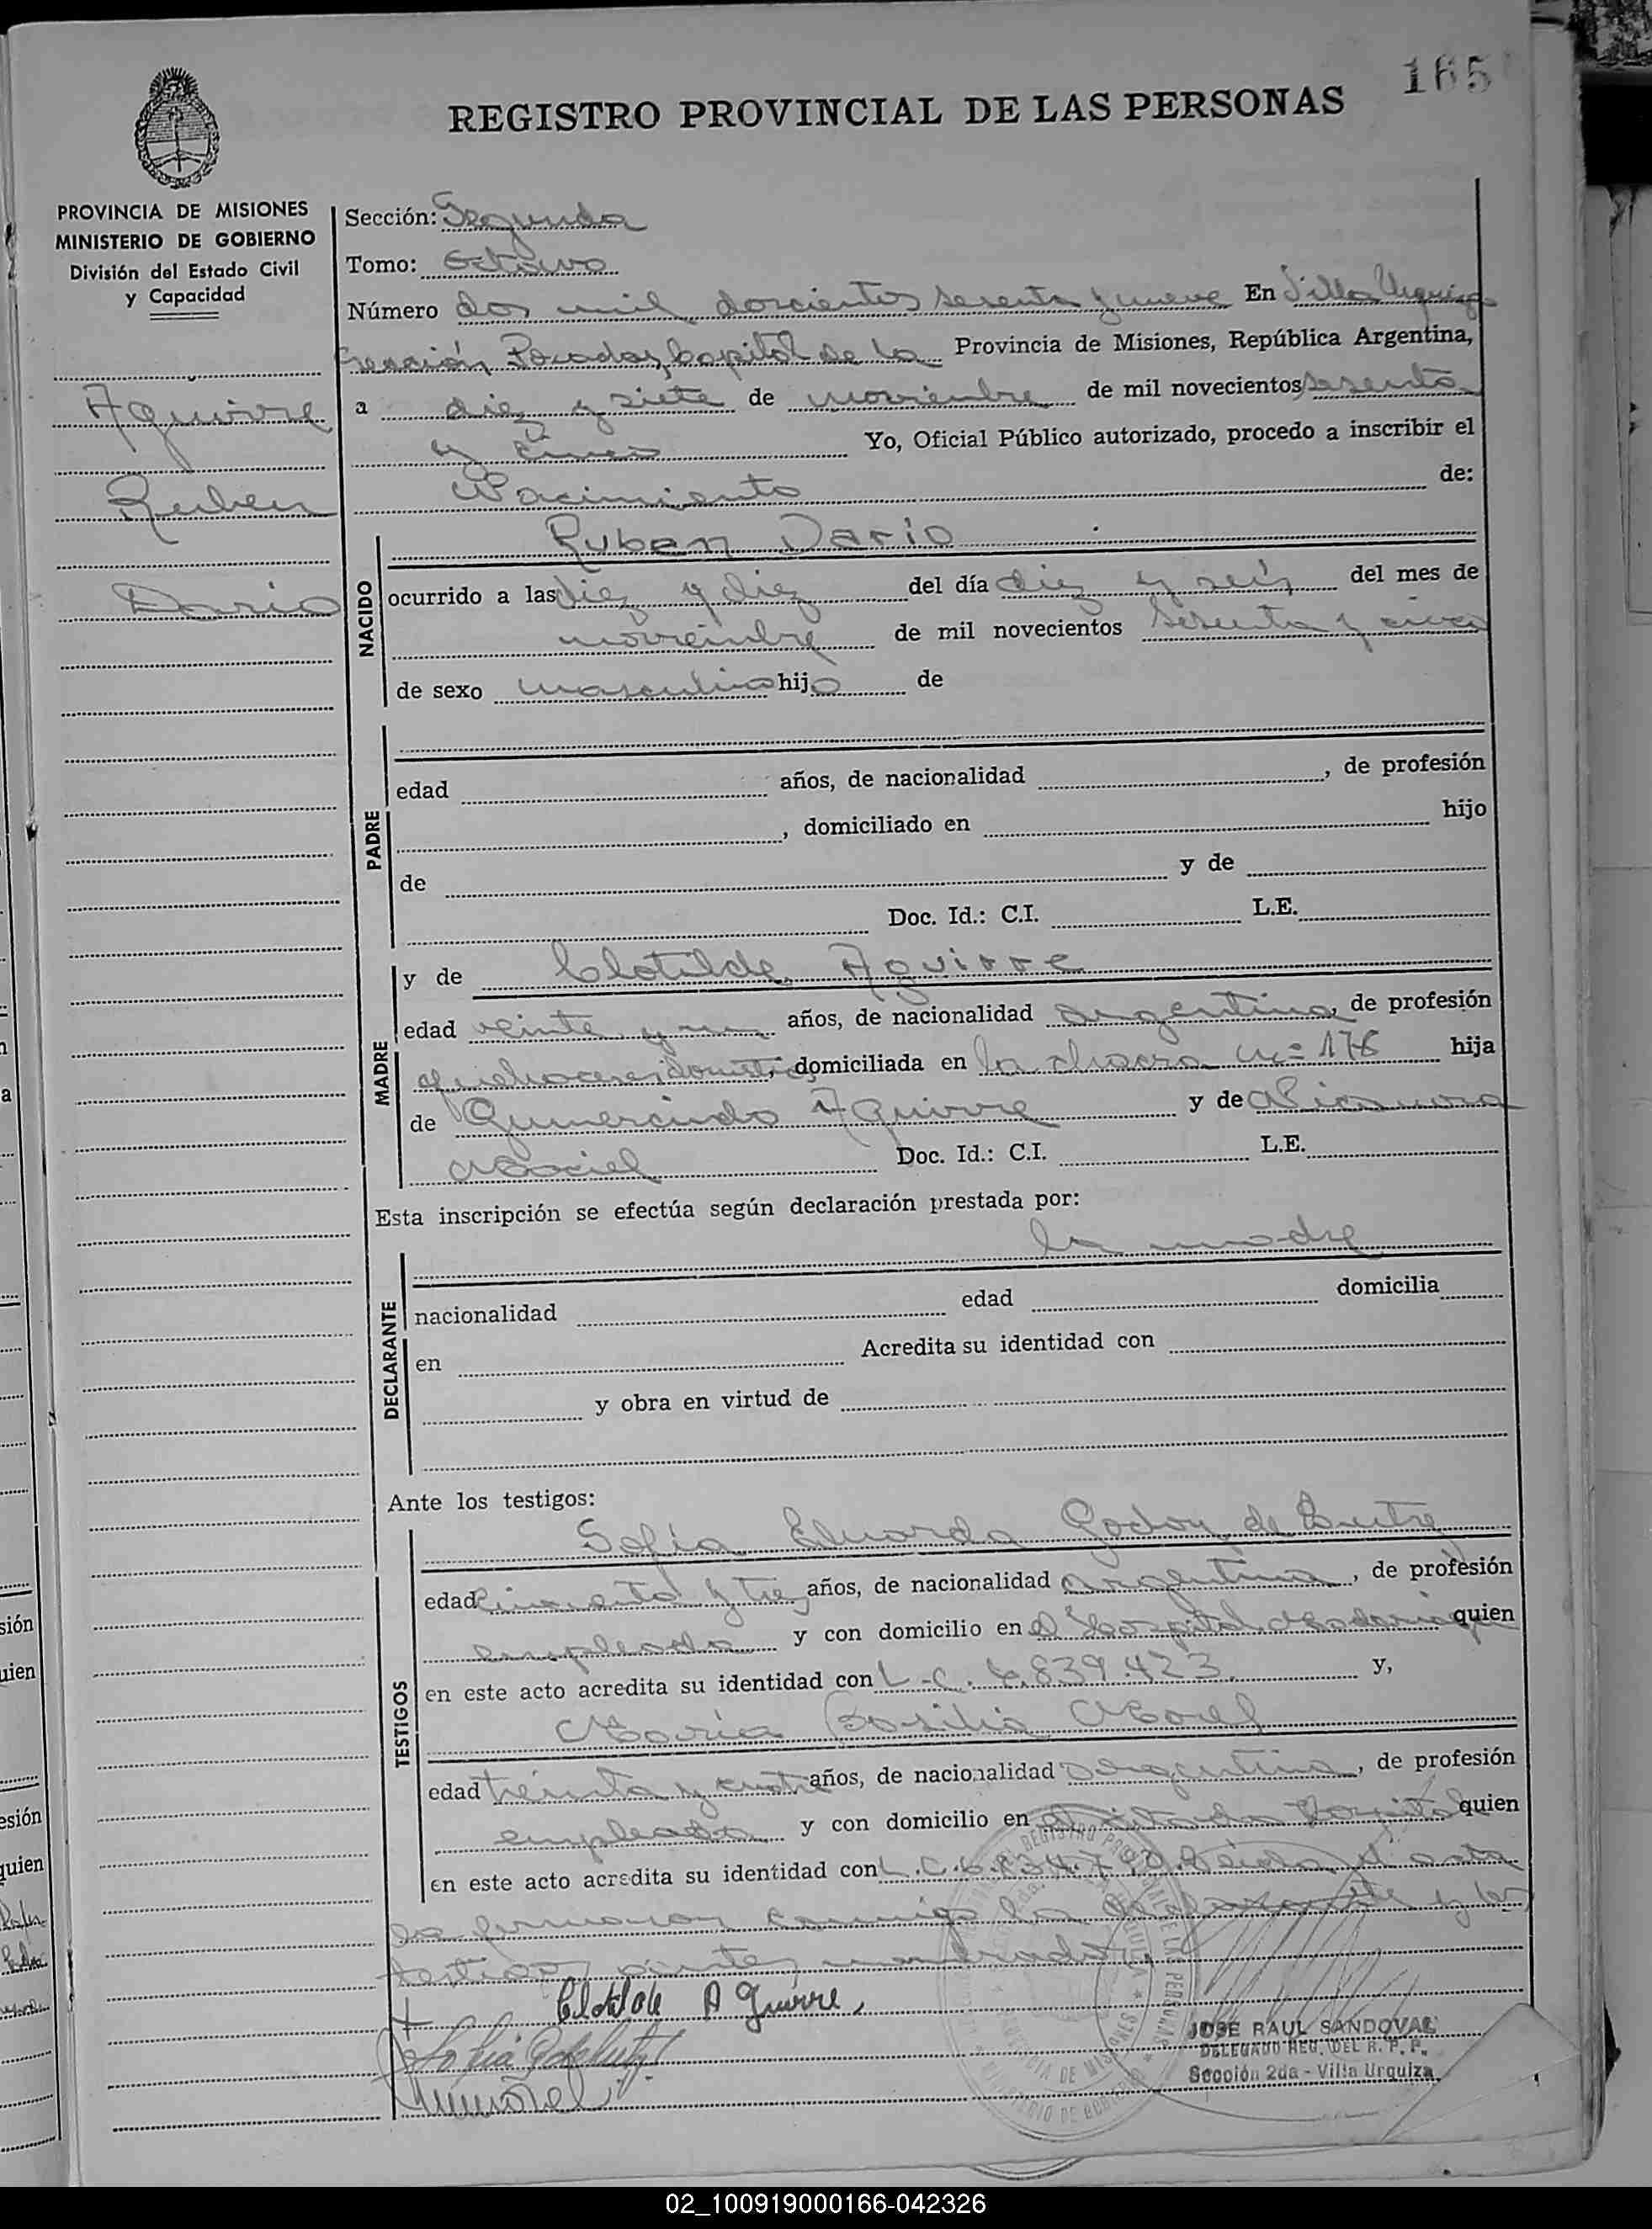 165
REGISTRO PROVINCIAL DE LAS PERSONAS
PROVINCIA DE MISIONES
MINISTERIO DE GOBIERNO
División del Estado Civil
y Capacidad
Aguirre
Ruben
Dario
Sección: Segunda
Tomo: Octavo
Número dos mil doscientos sesenta y nueve En Villa Urquiza
sección Posadas, Capital de la Provincia de Misiones, República Argentina,
a diez y siete de noviembre de mil novecientos sesenta
y cinco Yo, Oficial Público autorizado, procedo a inscribir el
Nacimiento de:
NACIDO
Ruben Dario
ocurrido a las diez y diez del día diez y seis del mes de
noviembre de mil novecientos sesenta y cinco
de sexo masculino hijo de
PADRE
edad años, de nacionalidad , de profesión
, domiciliado en hijo
de y de
Doc. Id.: C.I. L.E.
MADRE
y de Clotilde Aguirre
edad veinte y un años, de nacionalidad argentina, de profesión
quehaceres domést, domiciliada en la chacra n= 176 hija
de Gumercindo Aguirre y de
Maciel Doc. Id.: C.I. L.E.
Esta inscripción se efectúa según declaración prestada por:
la madre
DECLARANTE
nacionalidad edad domicilia
en Acredita su identidad con
y obra en virtud de
Ante los testigos:
TESTIGOS
Sofia Eduarda Godoy de
edad cincuenta y tres años, de nacionalidad argentina, de profesión
empleada y con domicilio en el Hospital Madariaga quien
en este acto acredita su identidad con L.C. 6.839.423 y,
María Basilia Morel
edad treinta y cuatro años, de nacionalidad argentina, de profesión
empleada y con domicilio en el citado Hospital quien
en este acto acredita su identidad con L.C. Leída el acta
la firmaron conmigo la declarante y los
testigos antes nombrados
Clotilde Aguirre
JOSE RAUL SANDOVAL
DELEGADO REG. DEL R. P. P.
Sección 2da - Villa Urquiza
02_100919000166-042326